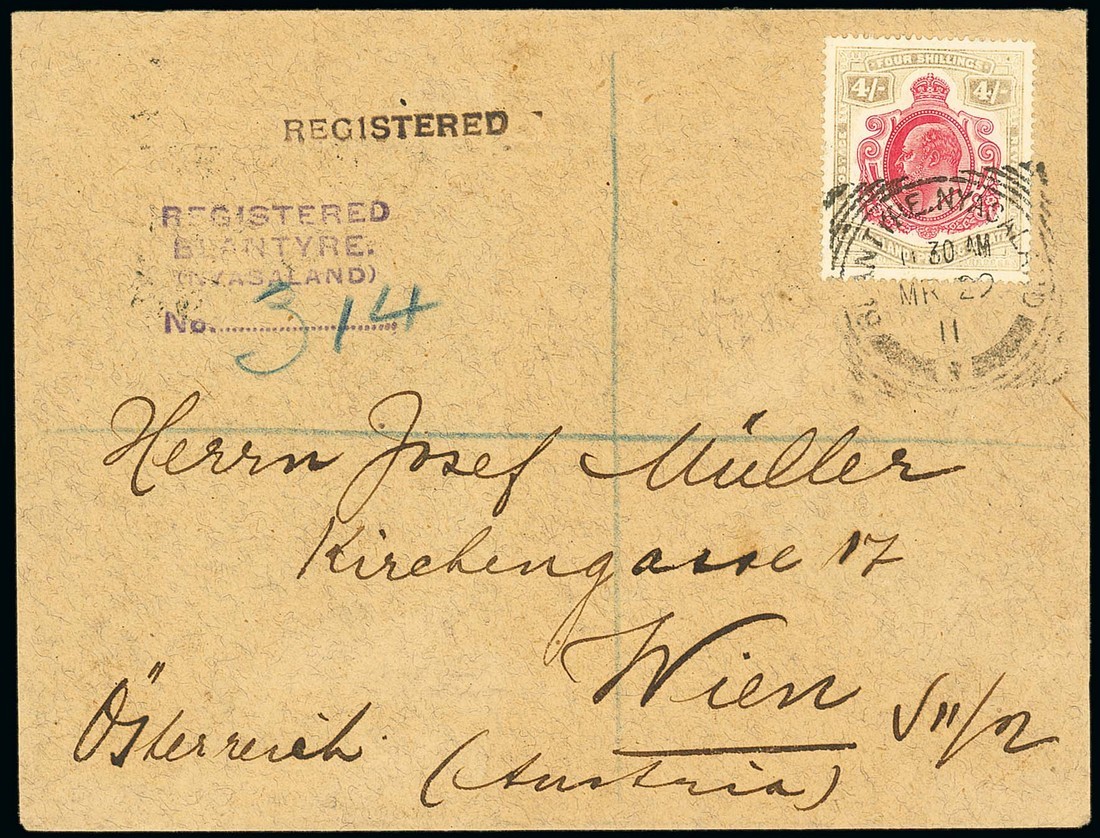 FOUR SHILLINGS
4/- 4/-
REGISTERED
REGISTERED
BLANTYRE.
(NYASALAND)
No. 314
BLANTYRE. NYASALAND
11 30 AM
MR 29
11
Herrn Josef Müller
Kirchengasse 17
Wien
Österreich
(Austria)